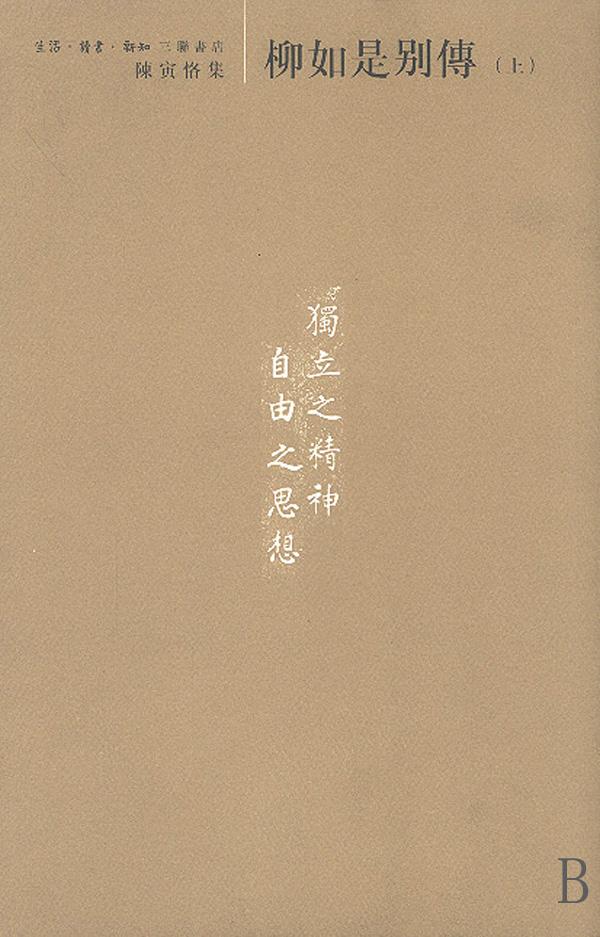 生活·讀書·新知 三聯書店
陳寅恪集
柳如是别傳(上)
獨立之精神
自由之思想
B